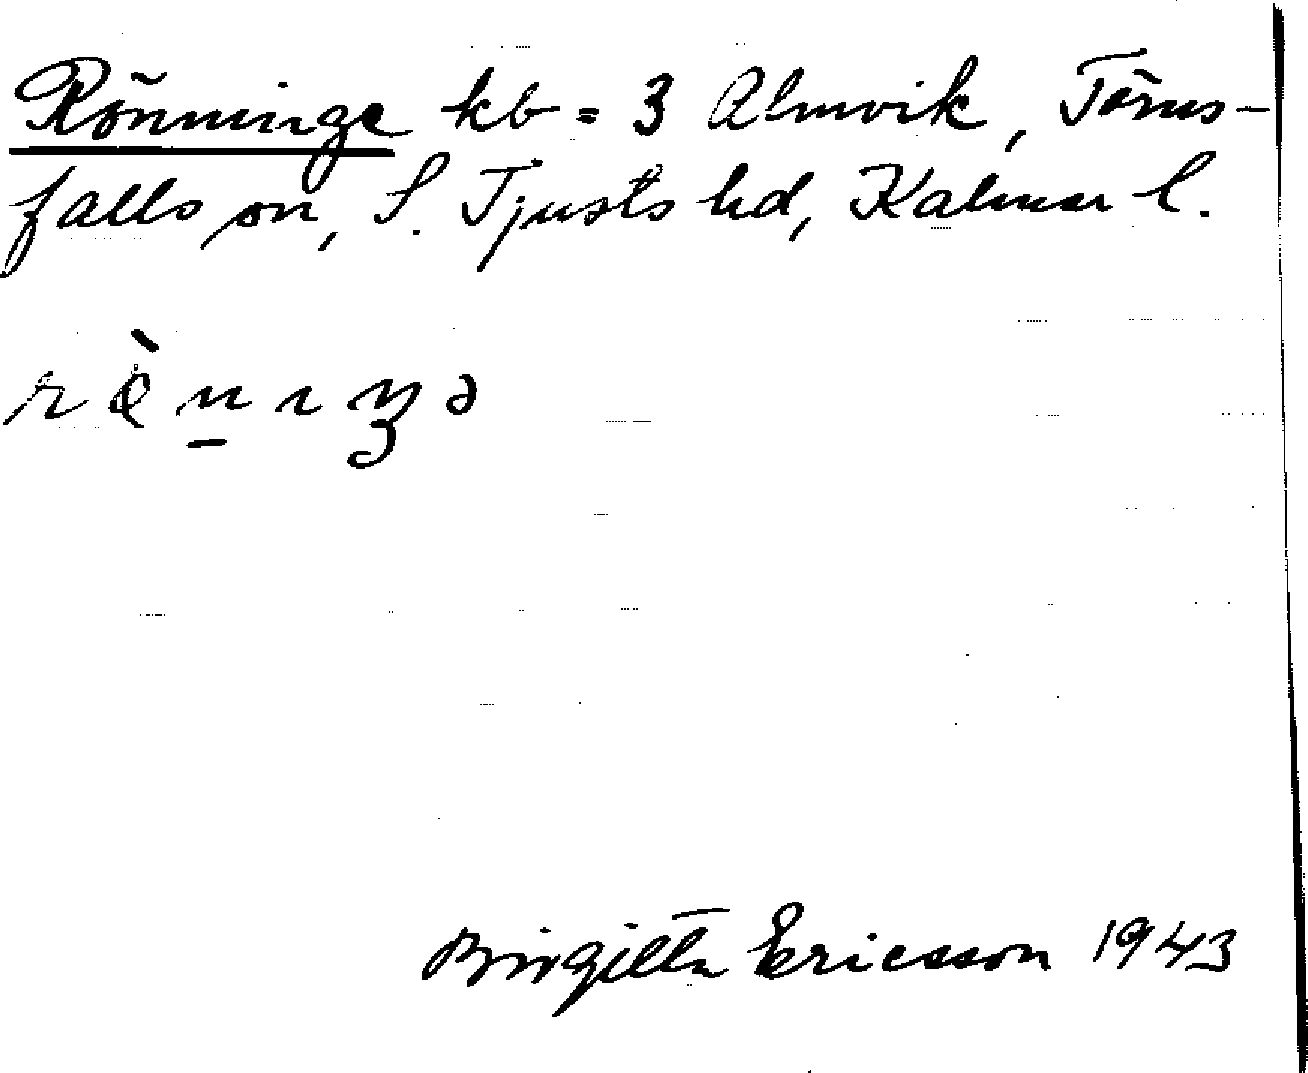 Rönninge kb = 3 Almvik, Törns-
falls sn, S. Tjusts hd, Kalmar l.
Birgitta Ericsson 1943